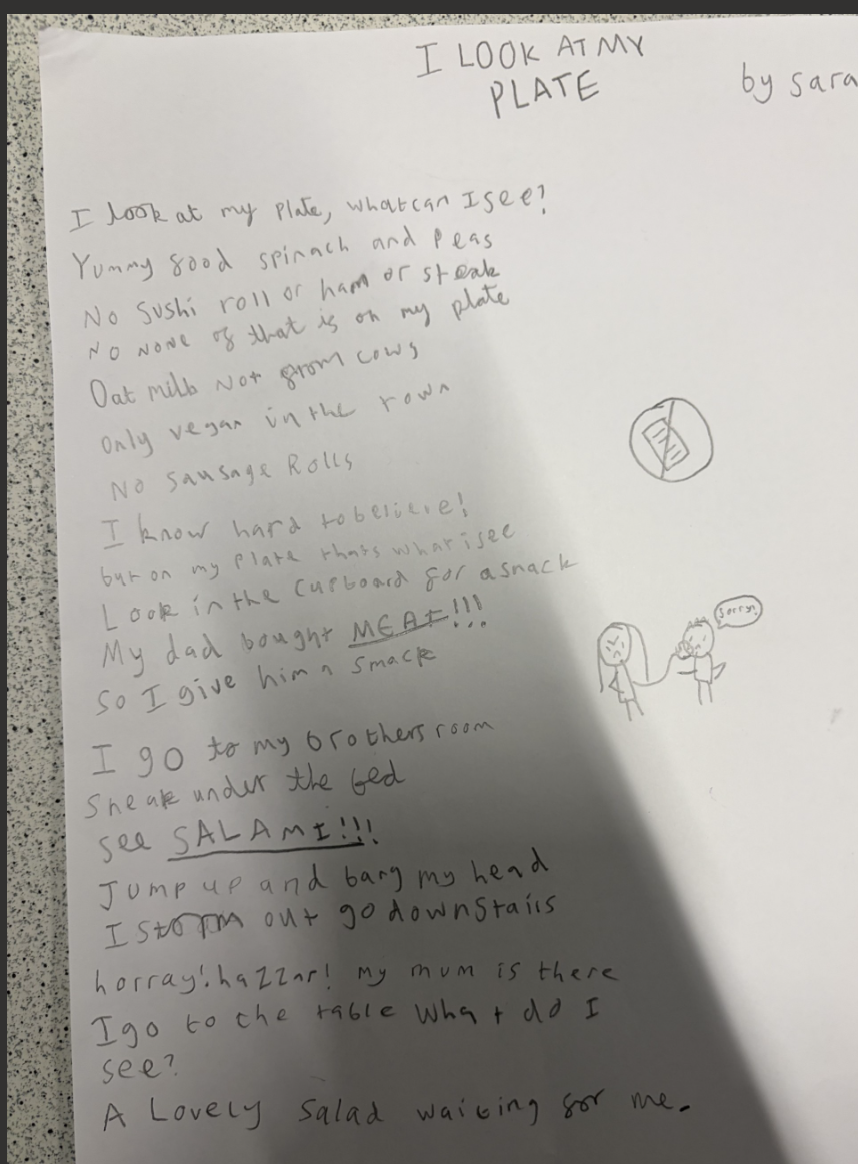 I LOOK AT MY
PLATE
by sara
I look at my plate, what can I see?
Yummy good spinach and peas
No sushi roll or ham or steak
NO NONE of that is on my plate
Oat milk Not from cows
only vegan in the town
No sausage Rolls
I know hard to believe!
but on my plate thats what i see
Look in the cupboard for a snack
My dad bought MEAT!!!
so I give him a smack
Sorry!
I go to my brothers room
Sneak under the bed
see SALAMI!!!
Jump up and bang my head
I storm out go downstairs
horray! hazzar! my mum is there
I go to the table what do I
see?
A Lovely salad waiting for me.